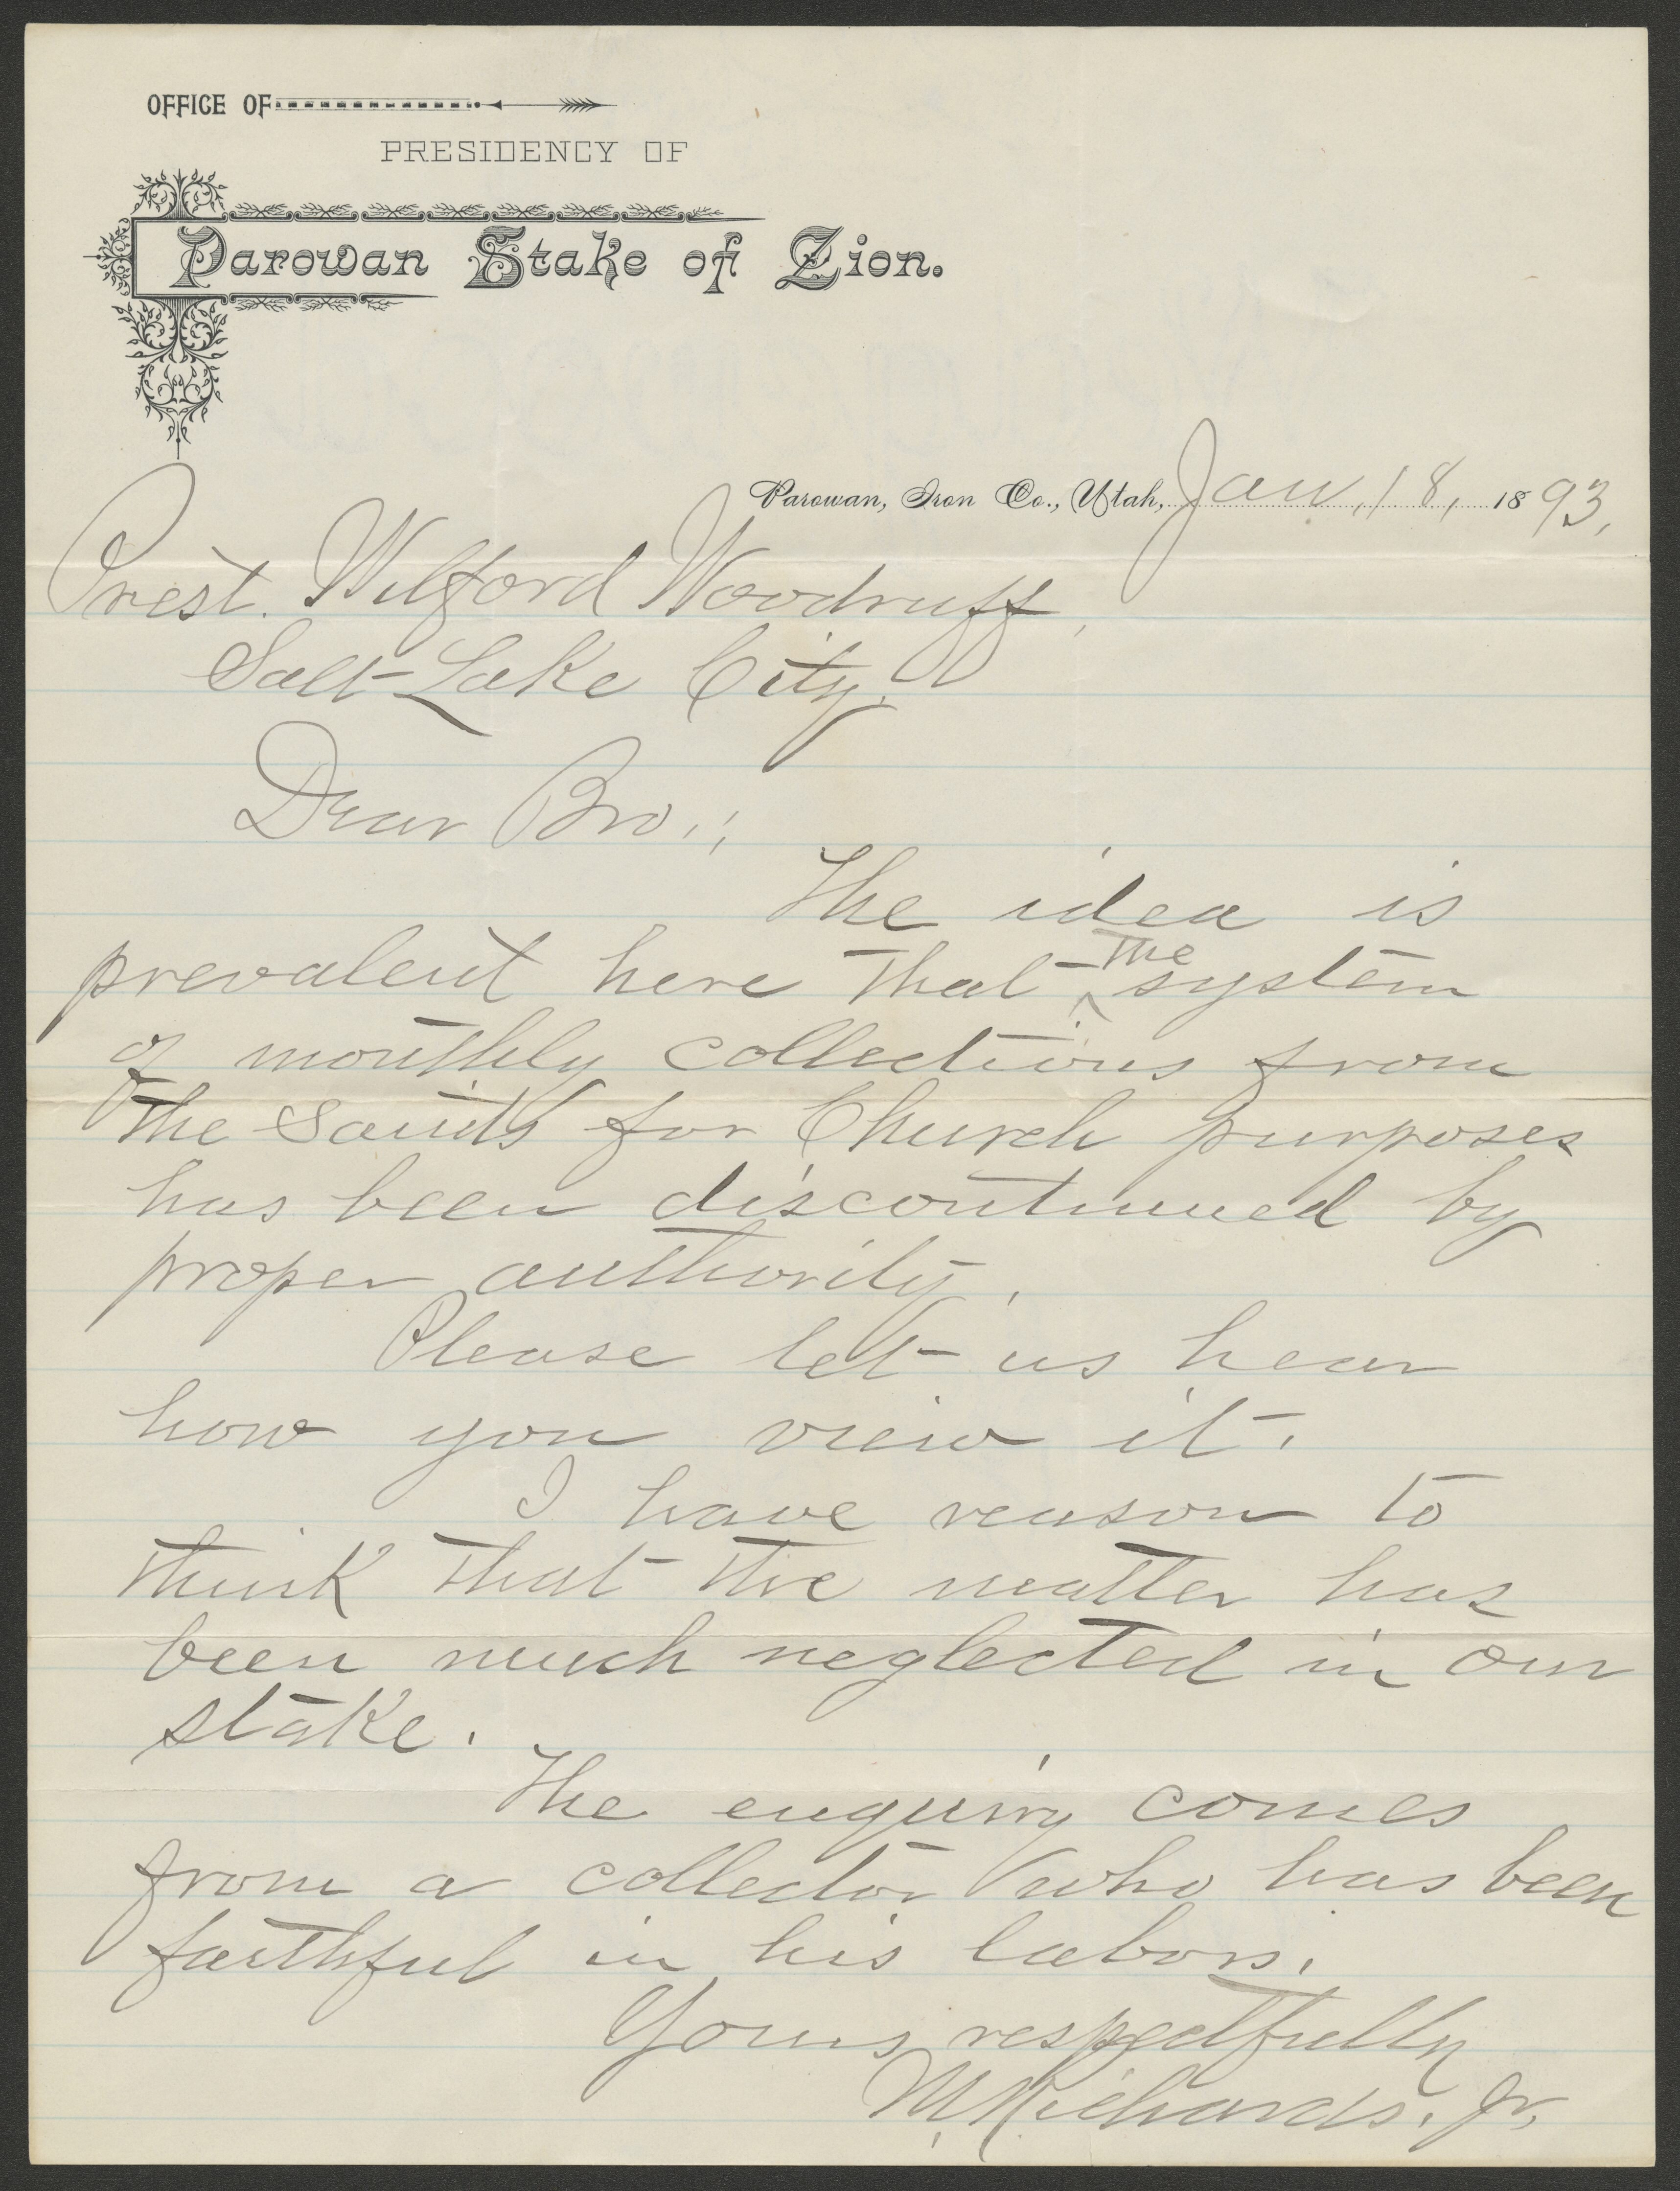 OFFICE OF
PRESIDENCY OF
Parowan Stake of Zion.
Parowan, Iron Co., Utah, Jan, 18, 1893,
Prest. Wilford Woodruff,
Salt Lake City.
Dear Bro.;
The idea is
prevalent here that ^the system
of monthly collections from
the Saints for Church purposes
has been discontinued by
proper authority.
Please let us hear
how you view it.
I have reason to
think that the matter has
been much neglected in our
stake.
The enquiry comes
from a collector who has been
faithful in his labors.
Yours respectfully
M. Richards. Jr,